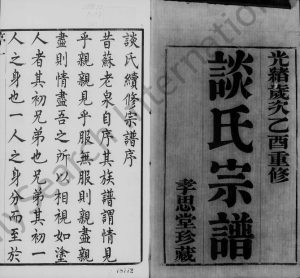 光緒歲次乙酉重修
談氏宗譜
孝思堂珍藏
談氏續修宗譜序
昔蘇老泉自序其族譜謂情見
乎親親見乎服無服則親盡親
盡則情盡吾之所以相視如塗
人者其初兄弟也兄弟其初一
人之身也一人之身分而至於